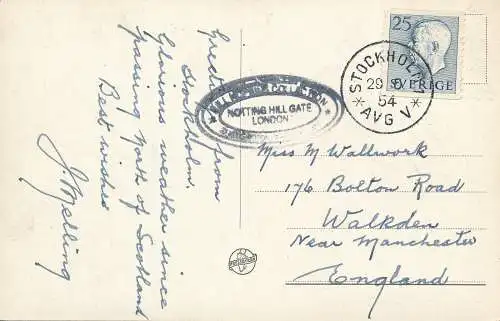 Greetings from
Stockholm.
Glorious weather since
passing north of Scotland
Best wishes
J. Melling
COLLECTION
NOTTING HILL GATE
LONDON
25
SVERIGE
STOCKHOLM
29 9
54
AVG V
Miss M Wallwork
176 Bolton Road
Walkden
Near Manchester
England